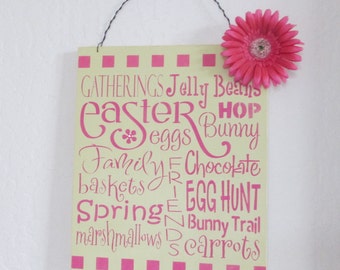 GATHERINGS Jelly Beans
easter HOP
eggs Bunny
Family Chocolate
baskets EGG HUNT
FRIENDS
Spring Bunny Trail
marshmallows carrots